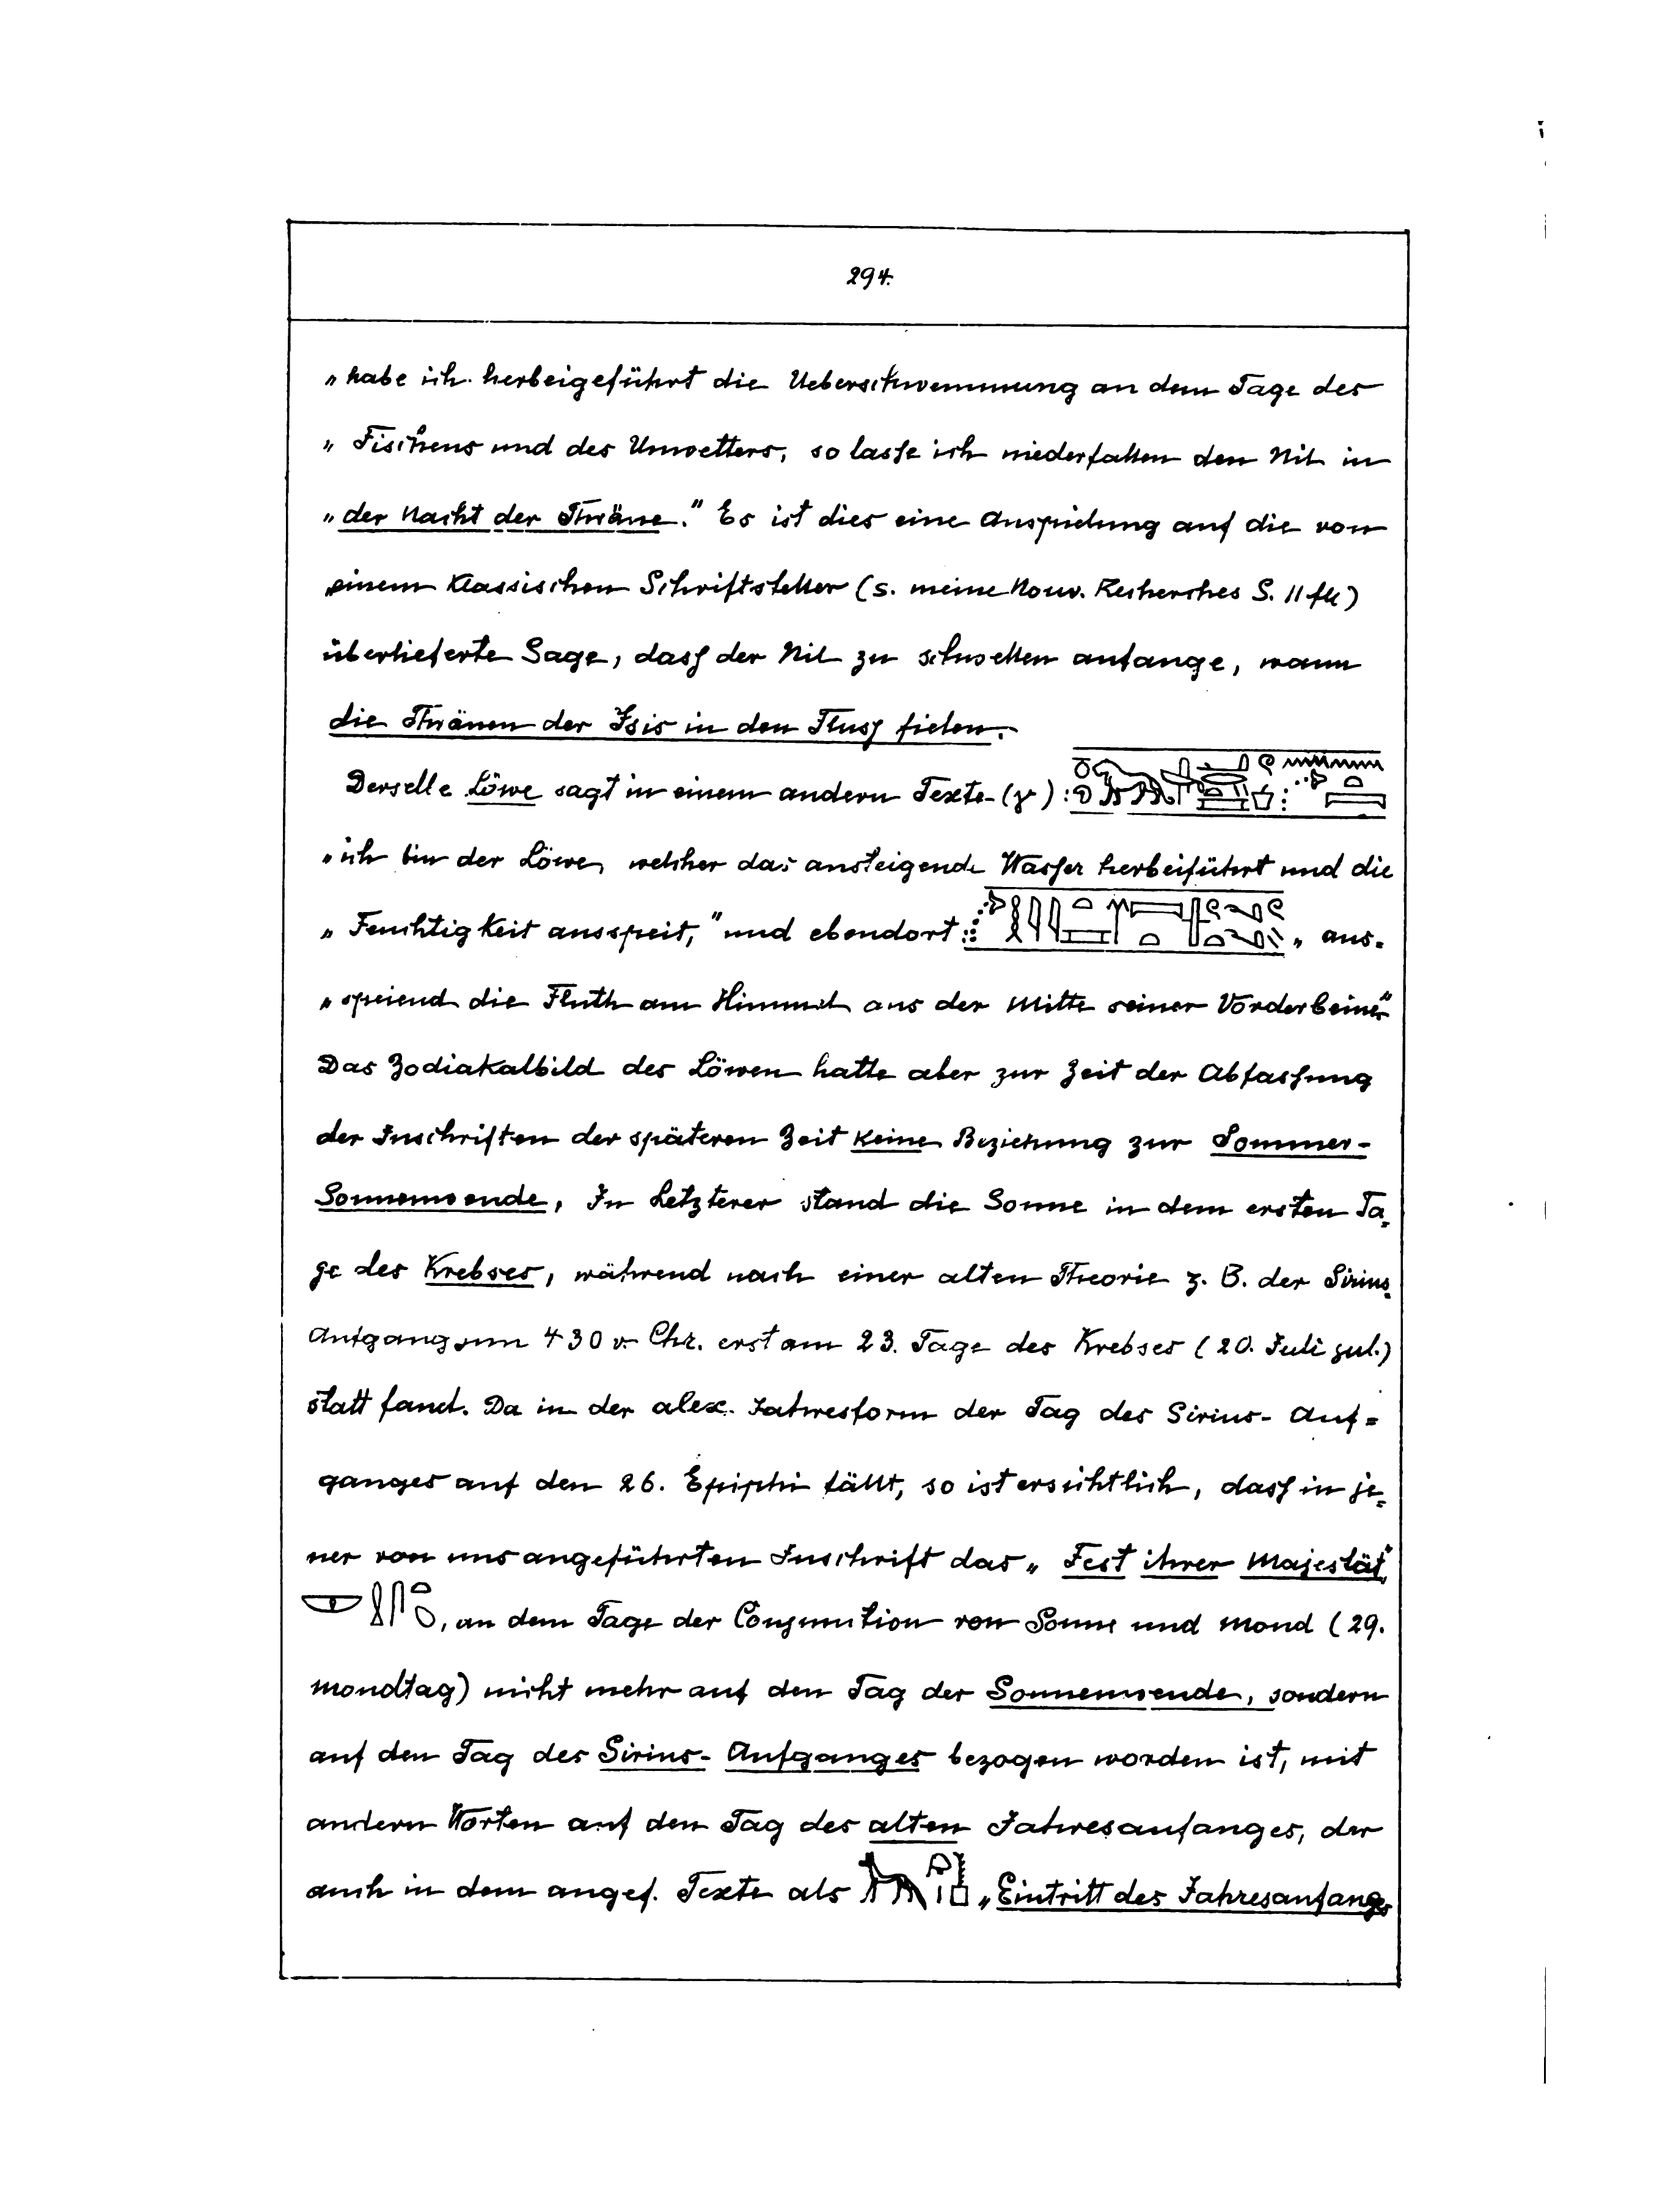 294.
„habe ich herbeigeführt die Ueberschwemmung an dem Tage des
„Fischens und des Unwetters, so lasse ich niederfallen den Nil in
„der Nacht der Thräne." Es ist dies eine Anspielung auf die von
einem klassischen Schriftsteller (s. meine Nouv. Recherches S. 11 fll)
überlieferte Sage, dass der Nil zu schwellen anfange, wann
die Thränen der Isis in den Fluss fielen.
Derselbe Löwe sagt in einem andern Texte (γ):
„ich bin der Löwe, welcher das ansteigende Wasser herbeiführt und die
„Feuchtigkeit ausspeit," und ebendort: „aus-
„speiend die Fluth am Himmel aus der Mitte seiner Vorderbeine"
Das Zodiakalbild des Löwen hatte aber zur Zeit der Abfassung
der Inschriften der späteren Zeit keine Beziehung zur Sommer-
Sonnenwende, In Letzterer stand die Sonne in dem ersten Ta-
ge des Krebses, während nach einer alten Theorie z. B. der Sirius-
Aufgang um 430 v. Chr. erst am 23. Tage des Krebses (20. Juli jul.)
statt fand. Da in der alex. Jahresform der Tag des Sirius- Auf-
ganges auf den 26. Epiphi fällt, so ist ersichtlich, dass in je-
ner von uns angeführten Inschrift das „Fest ihrer Majestät"
, an dem Tage der Conjunction von Sonne und Mond (29.
Mondtag) nicht mehr auf den Tag der Sonnenwende, sondern
auf den Tag des Sirius- Aufganges bezogen worden ist, mit
andern Worten auf den Tag des alten Jahresanfanges, der
auch in dem angef. Texte als „Eintritt des Jahresanfanges